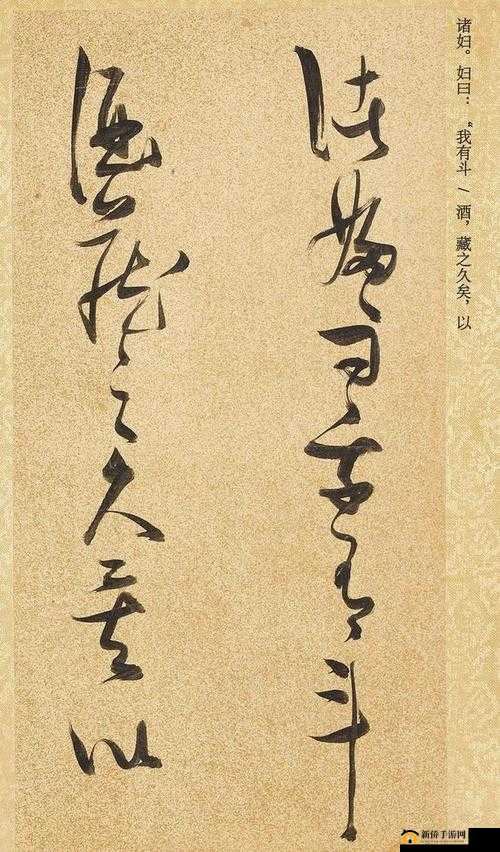 诸妇。妇曰：“我有斗/酒，藏之久矣，以
諸婦々曰我有斗
酒藏之久矣以
新侨手游网